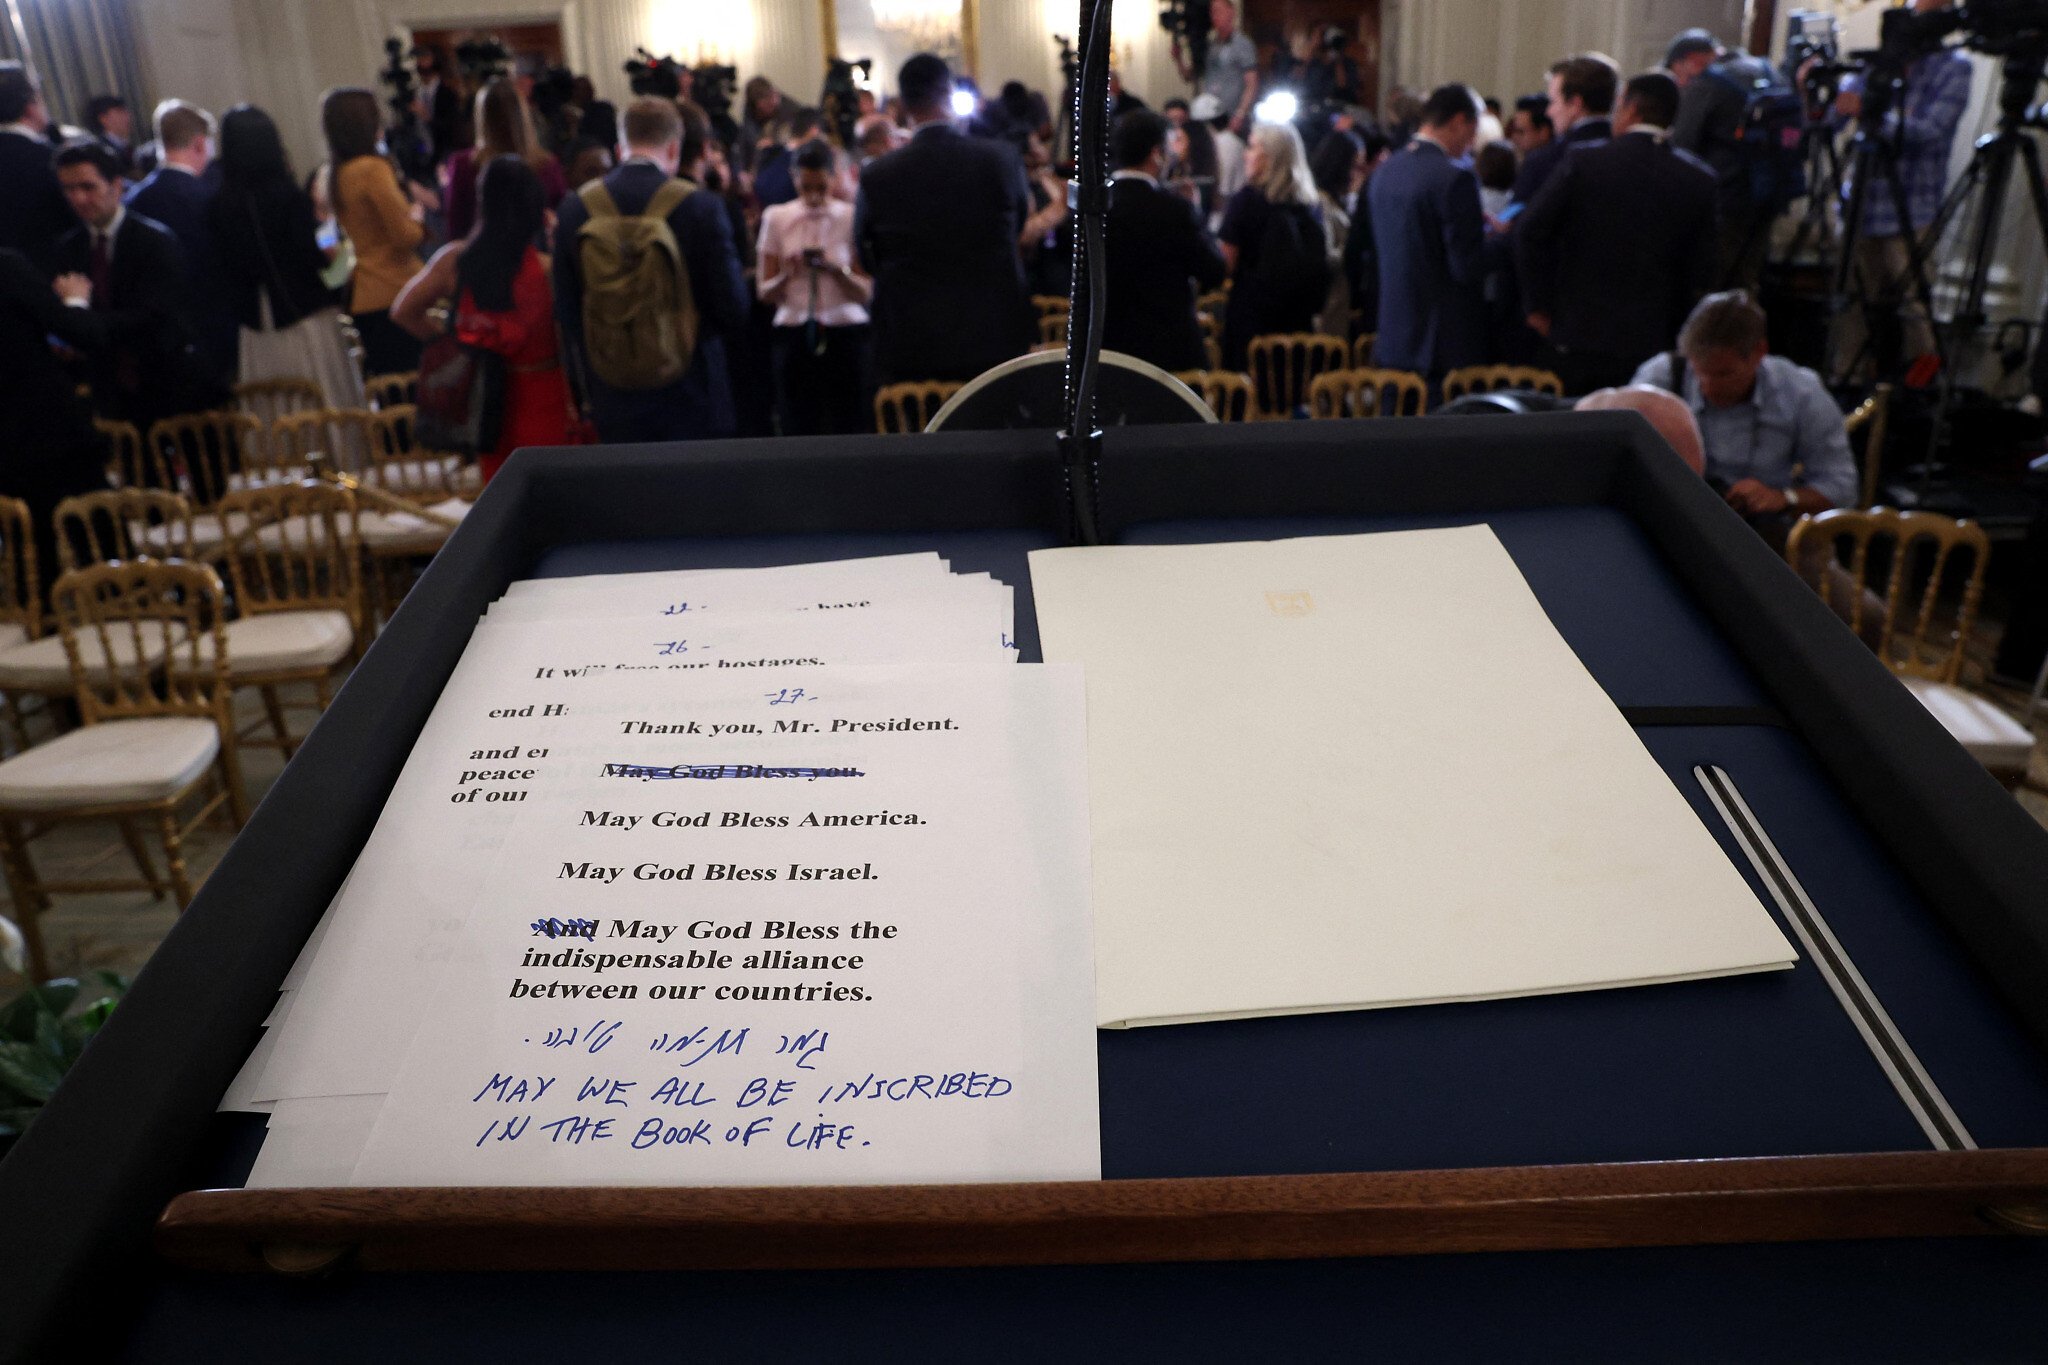 -22-
have
-26-
It will free our hostages.
end
and
peace
of our
-27-
Thank you, Mr. President.
May God Bless you.
May God Bless America.
May God Bless Israel.
And May God Bless the
indispensable alliance
between our countries.
גמר חתימה טובה.
MAY WE ALL BE INSCRIBED
IN THE BOOK OF LIFE.